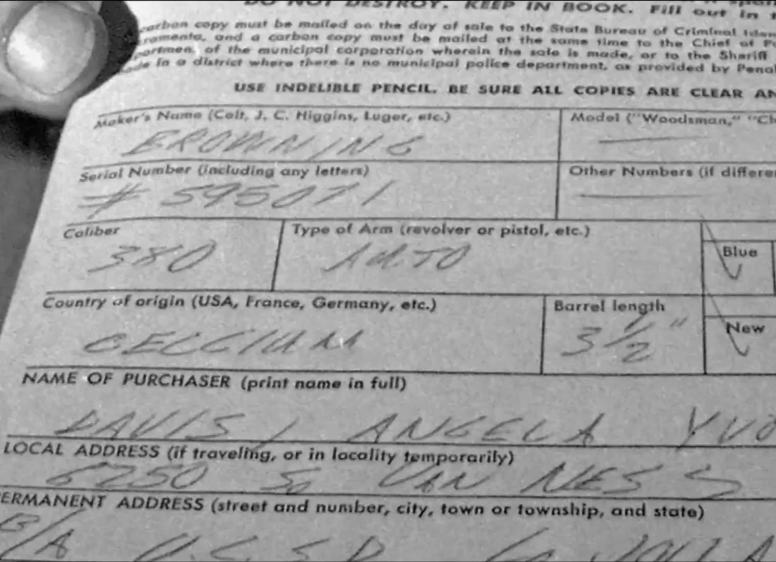 DO NOT DESTROY. KEEP IN BOOK. Fill out in
carbon copy must be mailed on the day of sale to the State Bureau of Criminal
and a carbon copy must be mailed at the same time to the Chief of
of the municipal corporation wherein the sale is made, or to the Sheriff
in a district where there is no municipal police department, as provided by Penal
USE INDELIBLE PENCIL. BE SURE ALL COPIES ARE CLEAR
Maker's Name (Colt, J. C. Higgins, Luger, etc.) Model ("Woodsman,"
BROWNING
Serial Number (including any letters) Other Numbers (if
# 595071
Caliber Type of Arm (revolver or pistol, etc.) Blue
380 AUTO
Country of origin (USA, France, Germany, etc.) Barrel length New
BELGIUM 3 1/2"
NAME OF PURCHASER (print name in full)
DAVIS, ANGELA
LOCAL ADDRESS (if traveling, or in locality temporarily)
6250 So VAN NESS
PERMANENT ADDRESS (street and number, city, town or township, and state)
U.C.S.D. La JOLLA